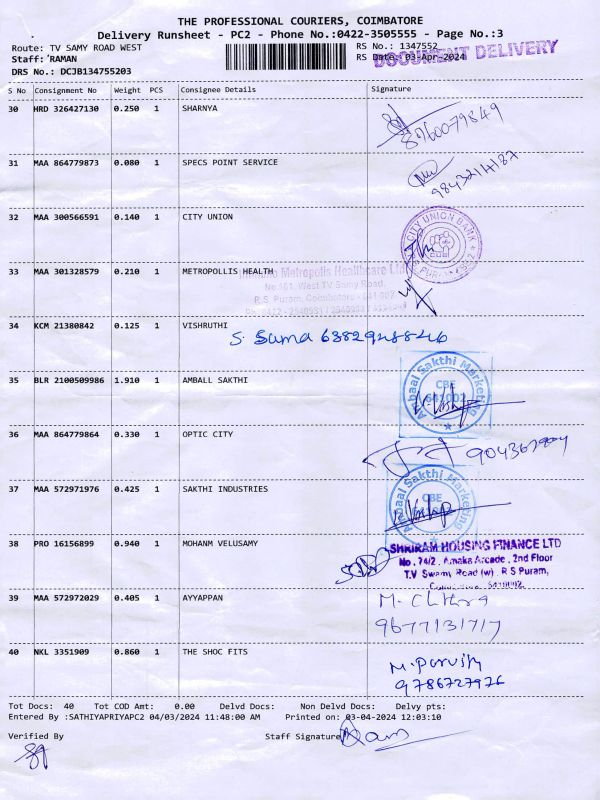 THE PROFESSIONAL COURIERS, COIMBATORE
Delivery Runsheet - PC2 - Phone No.:0422-3505555 - Page No.:3
Route: TV SAMY ROAD WEST RS No.: 1347552
DOCUMENT DELIVERY
Staff: RAMAN RS Date: 03-Apr-2024
DRS No.: DCJB134755203
S No Consignment No Weight PCS Consignee Details Signature
30 HRD 326427130 0.250 1 SHARNYA
8760079849
31 MAA 864779873 0.080 1 SPECS POINT SERVICE
32 MAA 300566591 0.140 1 CITY UNION
CITY UNION BANK
33 MAA 301328579 0.210 1 METROPOLLIS HEALTH
Metropolis Healthcare Ltd
No.161, West TV Samy Road,
R.S. Puram, Coimbatore - 641 002
34 KCM 21380842 0.125 1 VISHRUTHI
S. Suma
35 BLR 2100509986 1.910 1 AMBALL SAKTHI
Ambaal Sakthi Marketing
CBE
641002
36 MAA 864779864 0.330 1 OPTIC CITY
37 MAA 572971976 0.425 1 SAKTHI INDUSTRIES
Ambaal Sakthi Marketing
CBE
38 PRO 16156899 0.940 1 MOHANM VELUSAMY
SHRIRAM HOUSING FINANCE LTD
No. 74/2, Amaka Arcade, 2nd Floor
T.V Swamy Road (w), R S Puram,
39 MAA 572972029 0.405 1 AYYAPPAN
M. Chithra
9677131717
40 NKL 3351909 0.860 1 THE SHOC FITS
9786727976
Tot Docs: 40 Tot COD Amt: 0.00 Delvd Docs: Non Delvd Docs: Delvy pts:
Entered By :SATHIYAPRIYAPC2 04/03/2024 11:48:00 AM Printed on: 03-04-2024 12:03:10
Verified By Staff Signature